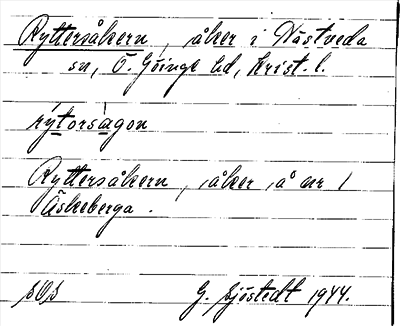 Ryttersåkern, åker i Nästveda
sn, Ö. Göinge hd, Krist. l.
rýtorsàgon
Ryttersåkern, åker å nr 1
Äskeberga.
G. Sjöstedt 1944.